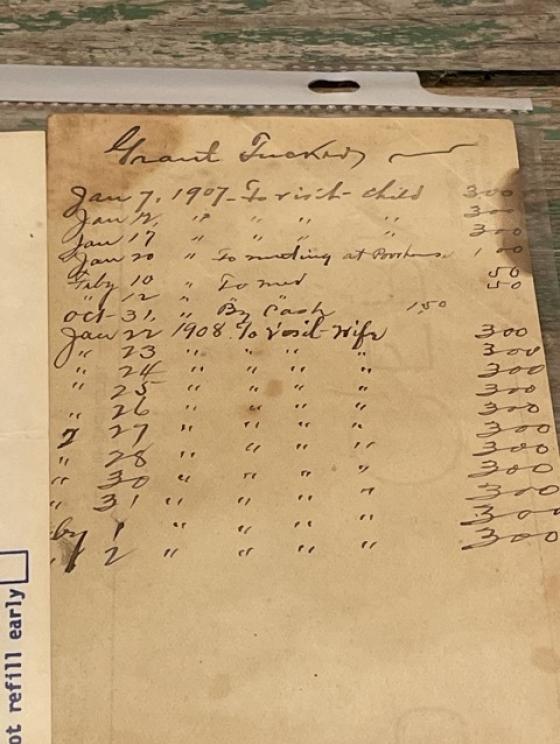 Grant Tucker
Jan 7, 1907 - To visit child 300
Jan 12, " " " " 300
Jan 17 " " " " 300
Jan 20 " To meeting at 100
Feby 10 " To med 50
" 12 " " 50
Oct 31, " By Cash 150
Jan 22 1908. To visit wife 300
" 23 " " " " 300
" 24 " " " " 300
" 25 " " " " 300
" 26 " " " " 300
" 27 " " " " 300
" 28 " " " " 300
" 30 " " " " 300
" 31 " " " " 300
by 1 " " " " 300
" 2 " " " " 300
ot refill early